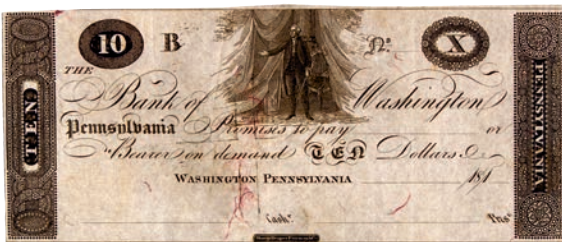 10 B Nº. X
THE
Bank of Washington
Pennsylvania Promises to pay or
Bearer on demand TEN Dollars
WASHINGTON PENNSYLVANIA 181
Cashr. Prest
PENNSYLVANIA